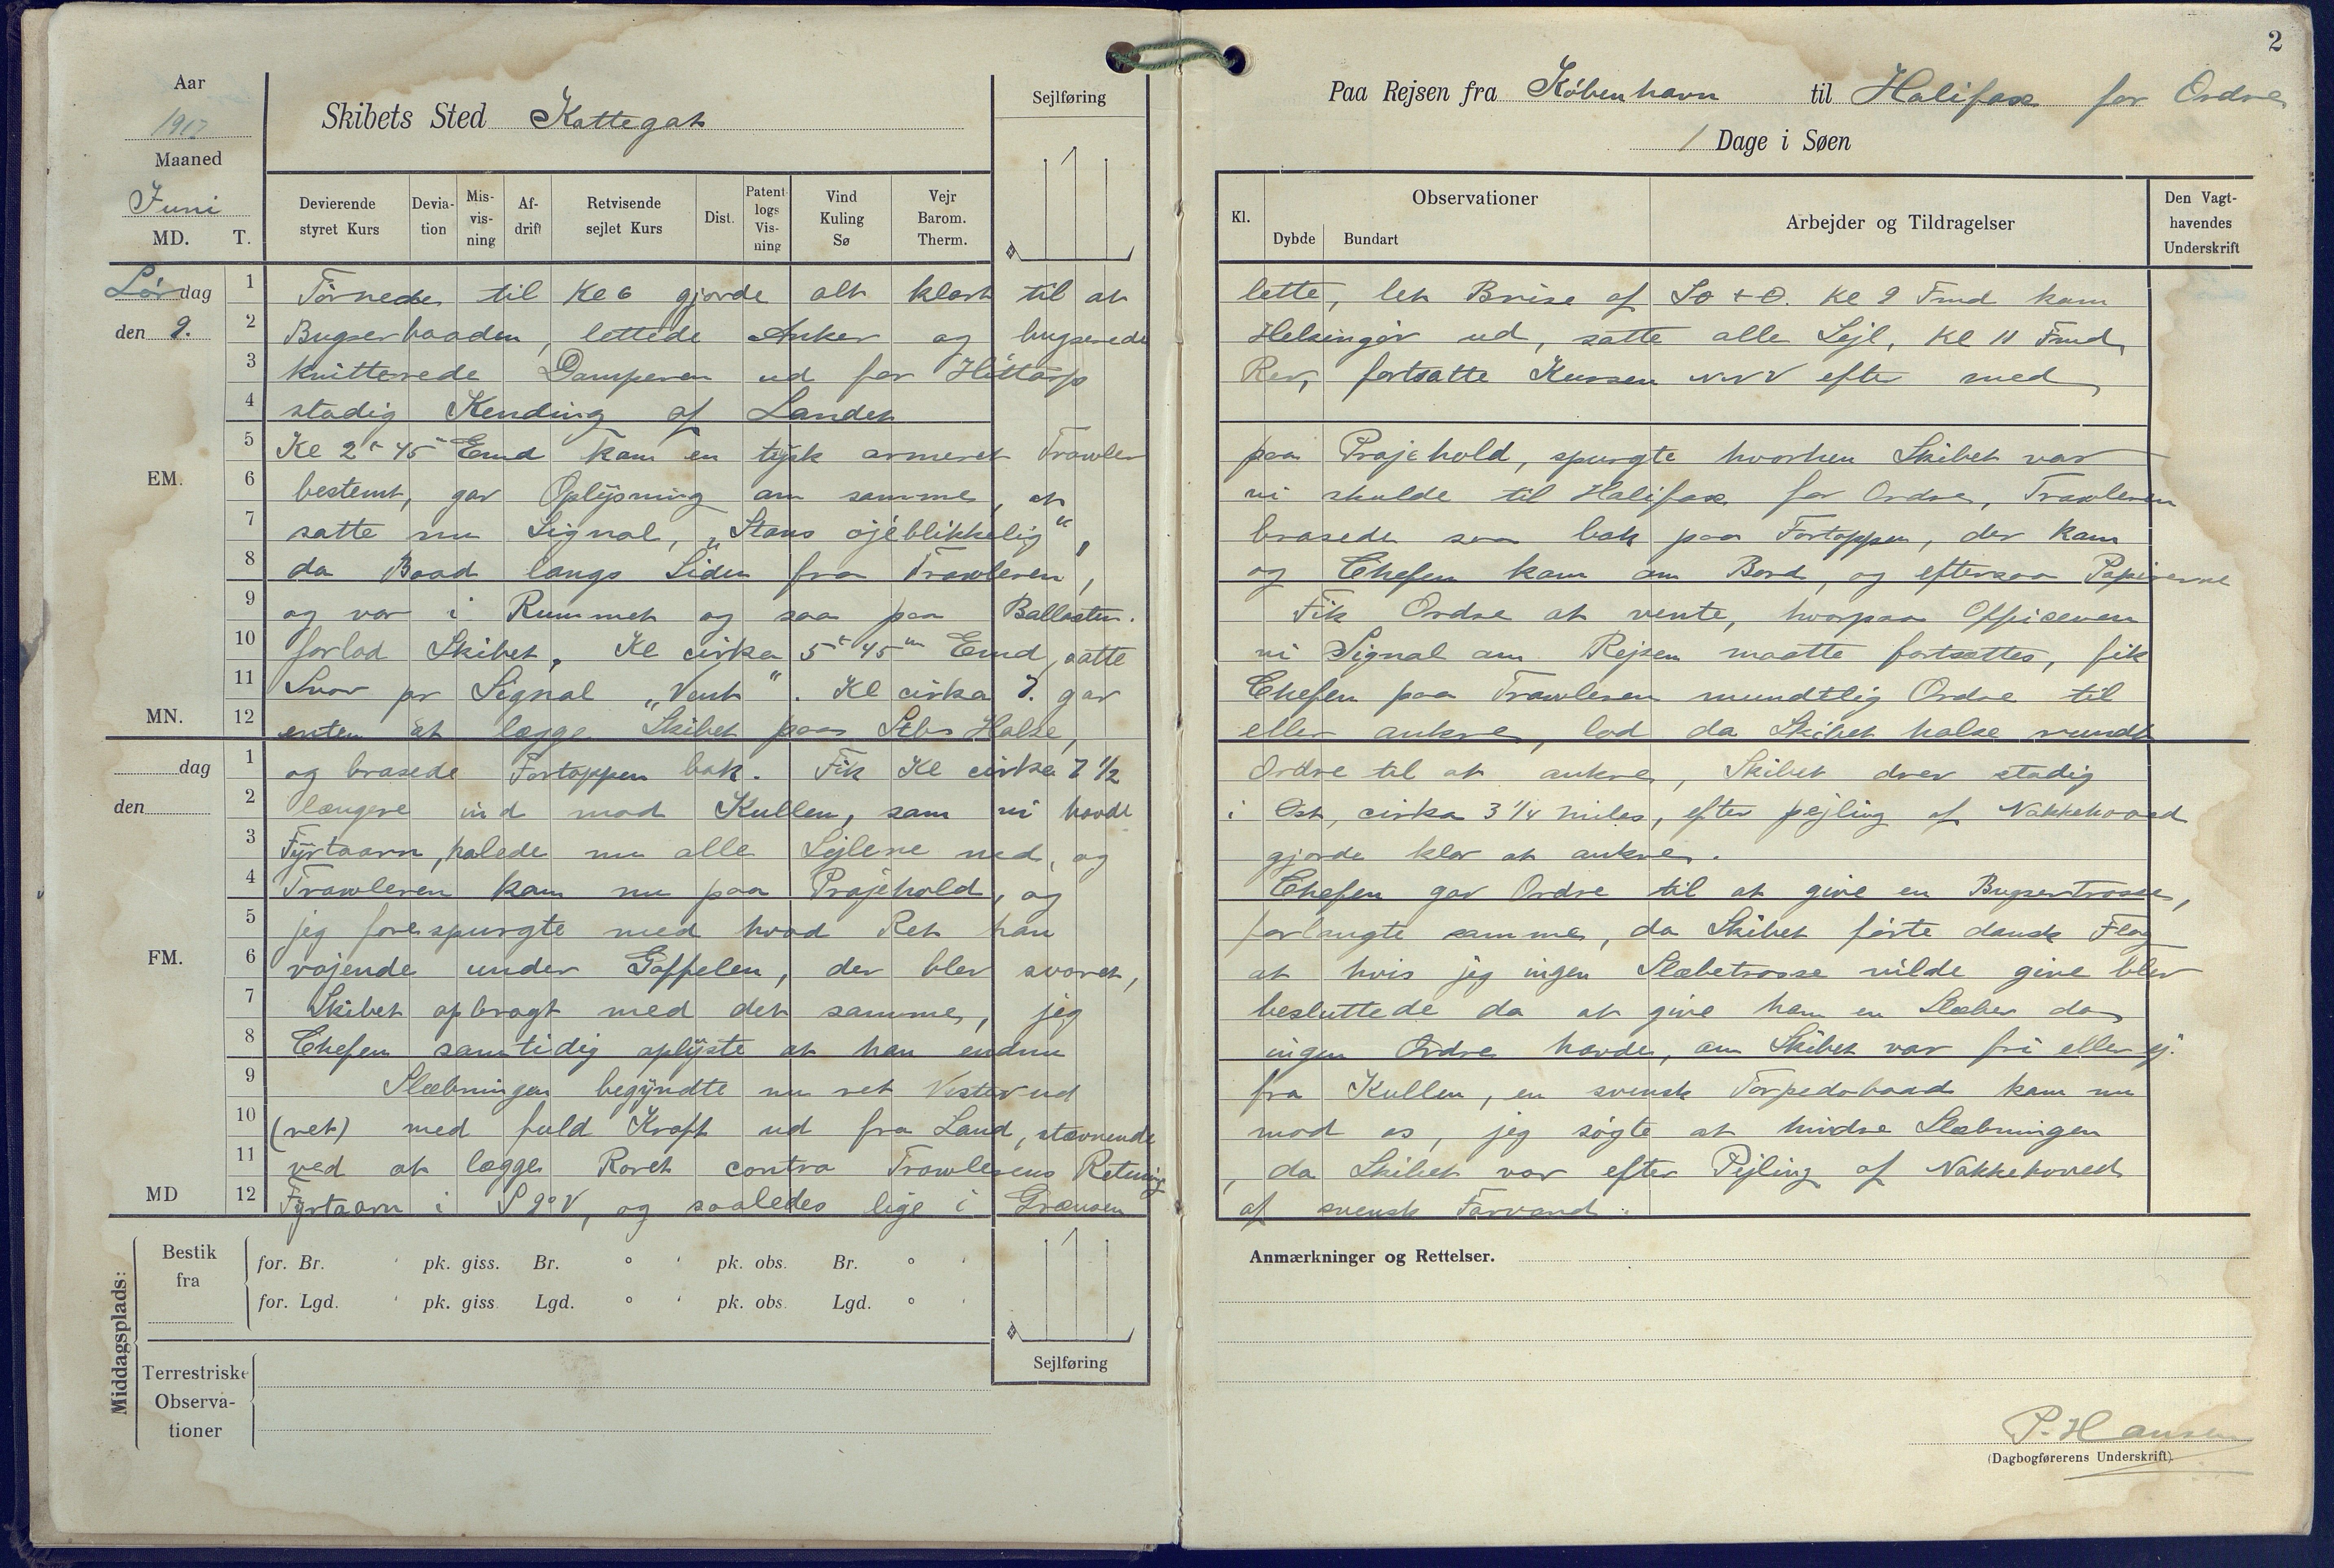 2
Aar
1917
Maaned
Juni
MD. T.
Skibets Sted Kattegat
Sejlføring
Paa Rejsen fra København til Halifax for Ordre
1 Dage i Søen
Devierende styret Kurs
Devia-tion
Mis-vis-ning
Af-drift
Retvisende sejlet Kurs
Dist.
Patent logs Vis-ning
Vind Kuling Sø
Vejr Barom. Therm.
Kl.
Observationer
Dybde Bundart
Arbejder og Tildragelser
Den Vagt-havendes Underskrift
Lørdag
den 9.
EM.
MN.
dag
den
FM.
MD
1 Törnede til Kl 6 gjorde alt klart til at lette, let Brise af SO + O. Kl 9 Fmd kam
2 Bugserbaaden, lettede Anker og bugserede Helsingör ud, satte alle Sejl, Kl 11 Fmd
3 kvitterede Damperen ud for Hittarp Rev, fortsatte Kursen NNV efter med
4 stadig Kending af Landet
5 Kl 2 t 45 Emd kam en tysk armeret Trawler paa Prajehold, spurgte hvorhen Skibet var
6 bestemt, gav Oplysning om samme, at vi skulde til Halifax for Ordre, Trawleren
7 satte nu Signal, „Stans øjeblikkelig", brasede saa bak paa Fortoppen, der kam
8 da Baad langs Siden fra Trawleren, og Chefen kam om Bord, og eftersaa Papirerne
9 og var i Rummet og saa paa Ballasten. Fik Ordre at vente, hvorpaa Officeren
10 forlod Skibet, Kl cirka 5 t 45 m Emd, satte vi Signal om Rejsen maatte fortsættes, fik
11 Svar pr Signal „Vent". Kl cirka 7. gav Chefen paa Trawleren mundtlig Ordre til
12 enten at lægge Skibet paa Stbr Halse, eller ankre, lod da Skibet halse rundt
1 og brasede Fortoppen bak. Fik Kl cirka 7 1/2 Ordre til at ankre, Skibet drev stadig
2 længere ind mod Kullen, som vi havde i Ost, cirka 3 1/4 miles, efter pejling af Nakkehoved
3 Fyrtaarn, halede nu alle Sejlene ned, og gjorde klar at ankre.
4 Trawleren kam nu paa Prajehold, og Chefen gav Ordre til at give en Bugsertrosse,
5 jeg forespurgte med hvad Ret han forlangte samme, da Skibet førte dansk Flag
6 vajende under Gaffelen, der blev svaret, at hvis jeg ingen Slæbetrosse vilde give blev
7 Skibet opbragt med det samme, jeg besluttede da at give ham en Slæber da
8 Chefen samtidig oplyste at han endnu ingen Ordre havde, om Skibet var fri eller ej.
9 Slæbningen begyndte nu ret Vester ud fra Kullen, en svensk Torpedobaad kam nu
10 (ret) med fuld Kraft ud fra Land, stævnende mod os, jeg søgte at hindre Slæbningen
11 ved at lægge Roret contra Trawlerens Retning, da Skibet var efter Pejling af Nakkehoved
12 Fyrtaarn i S 9° V, og saaledes lige i Grænsen af svensk Farvand.
Middagsplads:
Bestik fra
for. Br. ' pk. giss. Br. ° ' pk. obs. Br. ° '
for. Lgd. ' pk. giss. Lgd. ° ' pk. obs. Lgd. ° '
Terrestriske Observa-tioner
Sejlføring
Anmærkninger og Rettelser.
P. Hansen
(Dagbogførerens Underskrift)